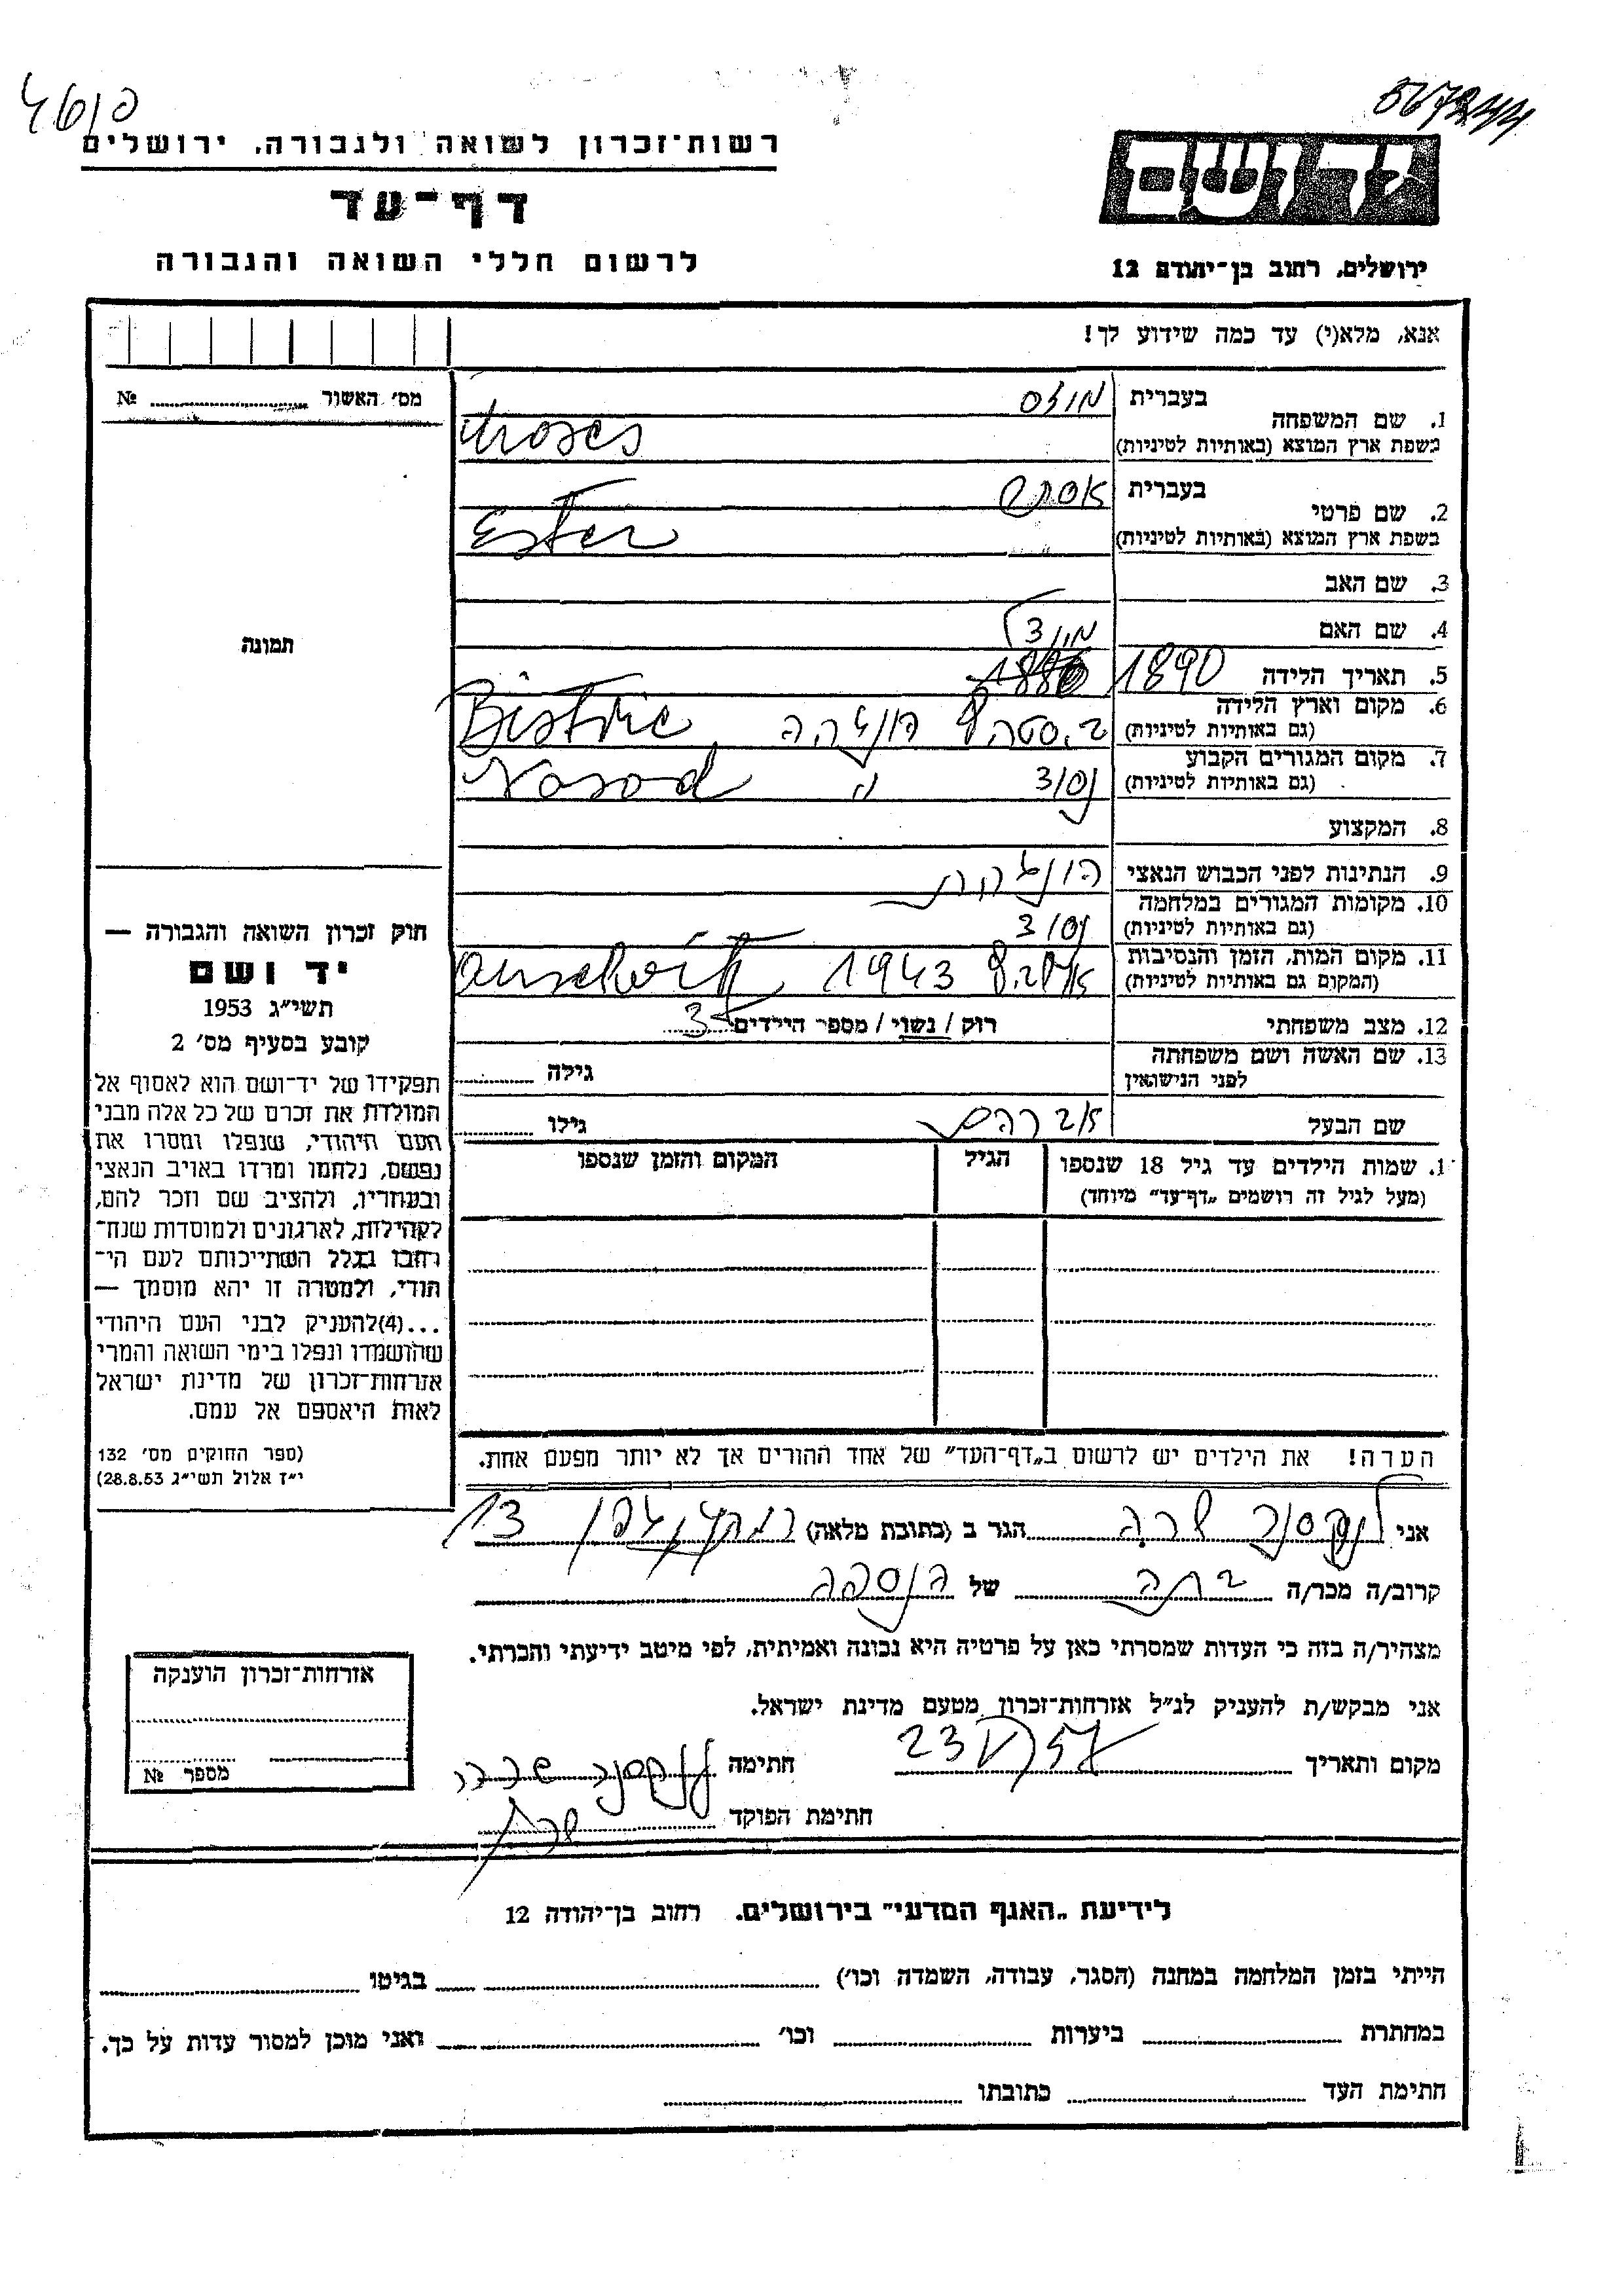 רשות־זכרון לשואה ולגבורה, ירושלים
דף־עד
לרשום חללי השואה והגבורה
ידושם
ירושלים, רחוב בן־יהודה 12
אנא, מלא(י) עד כמה שידוע לך!
מס׳ האשור № 
תמונה
1. שם המשפחה בעברית מוזס
בשפת ארץ המוצא (באותיות לטיניות) Moses
2. שם פרטי בעברית אסתר
בשפת ארץ המוצא (באותיות לטיניות) Ester
3. שם האב
4. שם האם
5. תאריך הלידה 1890
6. מקום וארץ הלידה
(גם באותיות לטיניות) הונגריה Bistric
7. מקום המגורים הקבוע
(גם באותיות לטיניות) Nasod
8. המקצוע
9. הנתינות לפני הכבוש הנאצי הונגרית
10. מקומות המגורים במלחמה
(גם באותיות לטיניות)
11. מקום המות, הזמן והנסיבות
(המקום גם באותיות לטיניות) 1943
12. מצב משפחתי רוק / נשוי / מספר הילדים 3
13. שם האשה ושם משפחתה
לפני הנישואין גילה
שם הבעל אברהם גילו
1. שמות הילדים עד גיל 18 שנספו הגיל המקום והזמן שנספו
(מעל לגיל זה רושמים „דף־עד״ מיוחד)
הערה! את הילדים יש לרשום ב„דף־העד״ של אחד ההורים אך לא יותר מפעם אחת.
חוק זכרון השואה והגבורה —
יד ושם
תשי״ג 1953
קובע בסעיף מס׳ 2
תפקידו של יד־ושם הוא לאסוף אל
המולדת את זכרם של כל אלה מבני
העם היהודי, שנפלו ומסרו את
נפשם, נלחמו ומרדו באויב הנאצי
ובעוזריו, ולהציב שם וזכר להם,
לקהילות, לארגונים ולמוסדות שנח־
רבו בגלל השתייכותם לעם הי־
הודי, ולמטרה זו יהא מוסמך —
...(4)להעניק לבני העם היהודי
שהושמדו ונפלו בימי השואה והמרי
אזרחות־זכרון של מדינת ישראל
לאות היאספם אל עמם.
(ספר החוקים מס׳ 132
י״ז אלול תשי״ג 28.8.53)
אני שרה הגר ב (כתובת מלאה) 13
קרוב/ה מכר/ה בתה של הנספה
מצהיר/ה בזה כי העדות שמסרתי כאן על פרטיה היא נכונה ואמיתית, לפי מיטב ידיעתי והכרתי.
אני מבקש/ת להעניק לנ״ל אזרחות־זכרון מטעם מדינת ישראל.
מקום ותאריך חתימה
חתימת הפוקד
אזרחות־זכרון הוענקה
מספר №
לידיעת „האגף המדעי״ בירושלים. רחוב בן־יהודה 12
הייתי בזמן המלחמה במחנה (הסגר, עבודה, השמדה וכו׳) בגיטו
במחתרת ביערות וכו׳ ואני מוכן למסור עדות על כך.
חתימת העד כתובתו